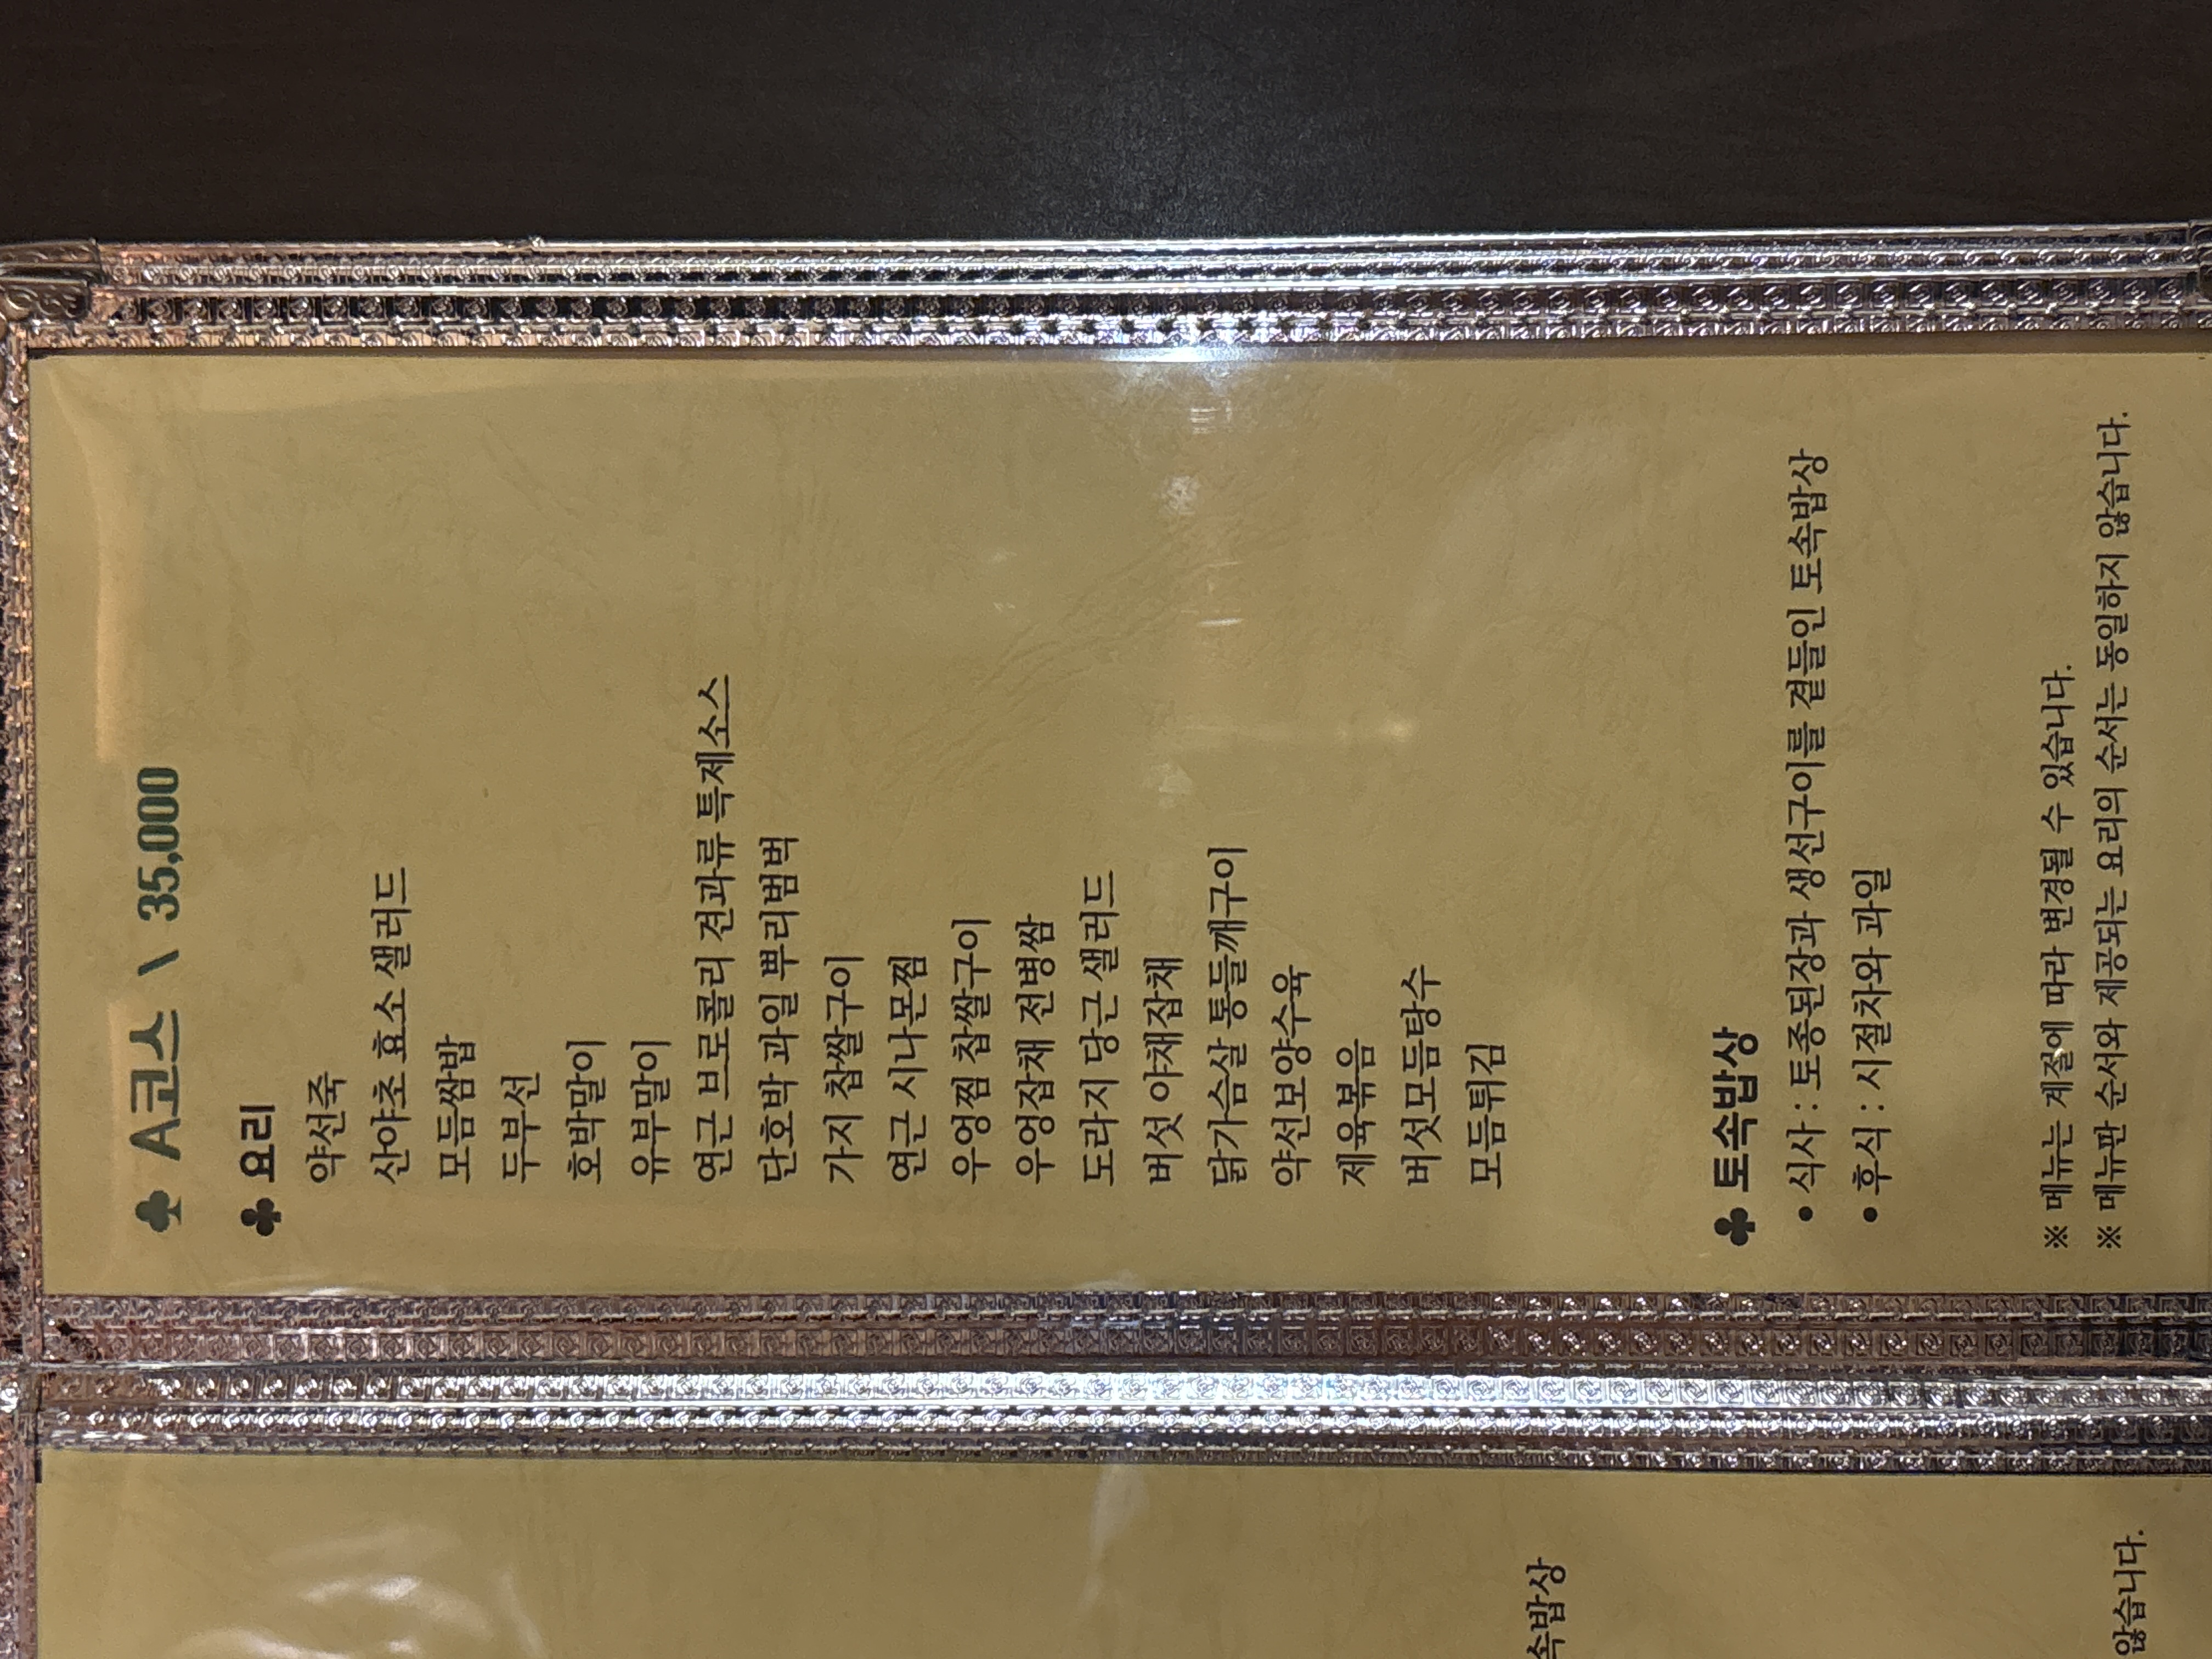 ♣ A코스 \ 35,000
♣ 요리
약선죽
산야초 효소 샐러드
모듬쌈밥
두부선
호박말이
유부말이
연근 브로콜리 견과류 특제소스
단호박 과일 뿌리범벅
가지 찹쌀구이
연근 시나몬찜
우엉찜 찹쌀구이
우엉잡채 전병쌈
도라지 당근 샐러드
버섯 야채잡채
닭가슴살 통들깨구이
약선보양수육
제육볶음
버섯모듬탕수
모듬튀김
♣ 토속밥상
• 식사 : 토종된장과 생선구이를 곁들인 토속밥상
• 후식 : 시절차와 과일
※ 메뉴는 계절에 따라 변경될 수 있습니다.
※ 메뉴판 순서와 제공되는 요리의 순서는 동일하지 않습니다.
속밥상
않습니다.